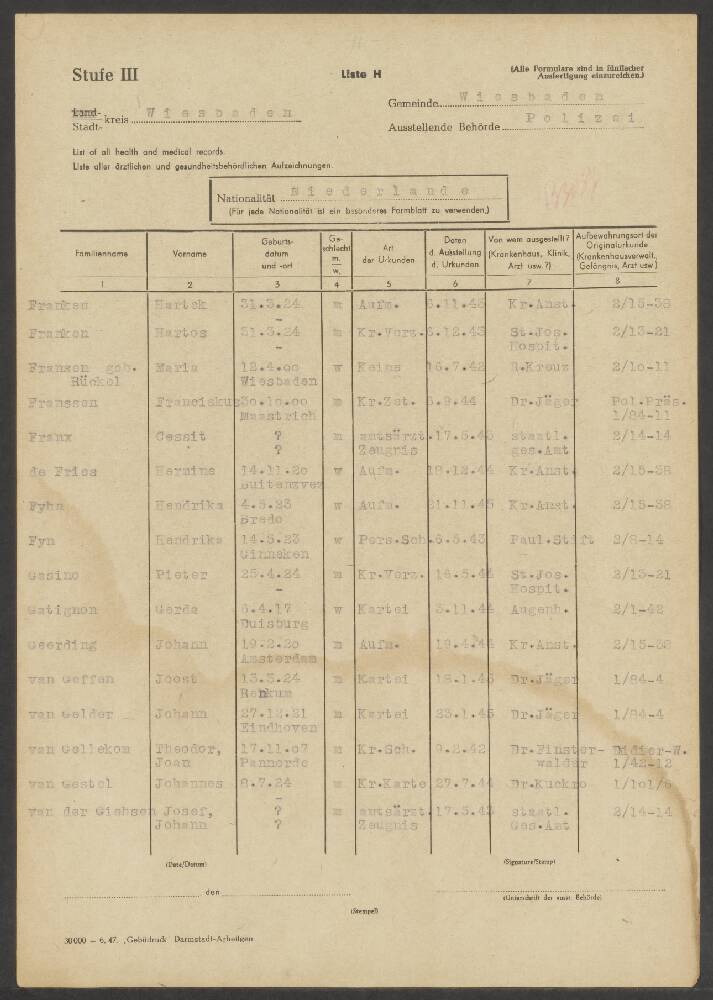 Stufe III
Liste H
(Alle Formulare sind in fünffacher
Ausfertigung einzureichen.)
Land-
Stadt- kreis Wiesbaden
Gemeinde Wiesbaden
Ausstellende Behörde Polizei
List of all health and medical records.
Liste aller ärztlichen und gesundheitsbehördlichen Aufzeichnungen.
Nationalität Niederlande
(Für jede Nationalität ist ein besonderes Formblatt zu verwenden.)
Familienname Vorname Geburtsdatum und -ort Geschlecht m. w. Art der Urkunden Daten d. Ausstellung d. Urkunden Von wem ausgestellt? (Krankenhaus, Klinik, Arzt usw.?) Aufbewahrungsort der Originalurkunde (Krankenhausverwalt., Gefängnis, Arzt usw.)
1 2 3 4 5 6 7 8
Franken Hartek 31.3.24 m Aufn. Kr.Anst. 2/15-38
-
Franken Hartog 31.3.24 m Kr.Verz. 6.12.43 St.Jos. 2/13-21
- Hospit.
Franzen geb. Maria 12.4.00 w Keine 16.7.42 R.Kreuz 2/10-11
Rückel Wiesbaden
Franssen Franciskus 30.10.00 m Kr.Zet. 5.9.44 Dr.Jäger Pol.Präs.
Maastrich 1/84-11
Franx Cessit ? m amtsärzt. 17.5.43 staatl. 2/14-14
? Zeugnis ges.Amt
de Fries Hermine 14.11.20 w Aufn. 18.12.44 Kr.Anst. 2/15-38
Buitenzvez
Fyhn Hendrika 4.5.23 w Aufn. 21.11.43 Kr.Anst. 2/15-38
Bredo
Fyn Hendrika 14.5.23 w Pers.Sch. 6.5.43 Paul.Stift 2/8-14
Ginneken
Gasino Pieter 25.4.24 m Kr.Verz. 16.5.44 St.Jos. 2/13-21
- Hospit.
Gatignon Gerda 6.4.17 w Kartei 3.11.44 Augenh. 2/1-42
Duisburg
Geerding Johann 19.2.20 m Aufn. 19.4.44 Kr.Anst. 2/15-38
Amsterdam
van Geffen Joost 13.3.24 m Kartei 18.1.45 Dr.Jäger 1/84-4
Renkum
van Gelder Johann 27.12.21 m Kartei 23.1.45 Dr.Jäger 1/84-4
Eindhoven
van Gellekom Theodor, 17.11.07 m Kr.Sch. 9.2.42 Dr.Finster- Didier-W.
Joan Pannerde walder 1/42-12
van Gestel Johannes 8.7.24 m Kr.Karte 27.7.44 Dr.Kuckro 1/101/6
-
van der Giehsen Josef, ? m amtsärzt. 17.5.43 staatl. 2/14-14
Johann ? Zeugnis Ges.Amt
(Date/Datum)
(Signature/Stamp)
den
(Unterschrift der ausst. Behörde)
(Stempel)
30000 – 6. 47. „Gebüdruck" Darmstadt-Arheilgen